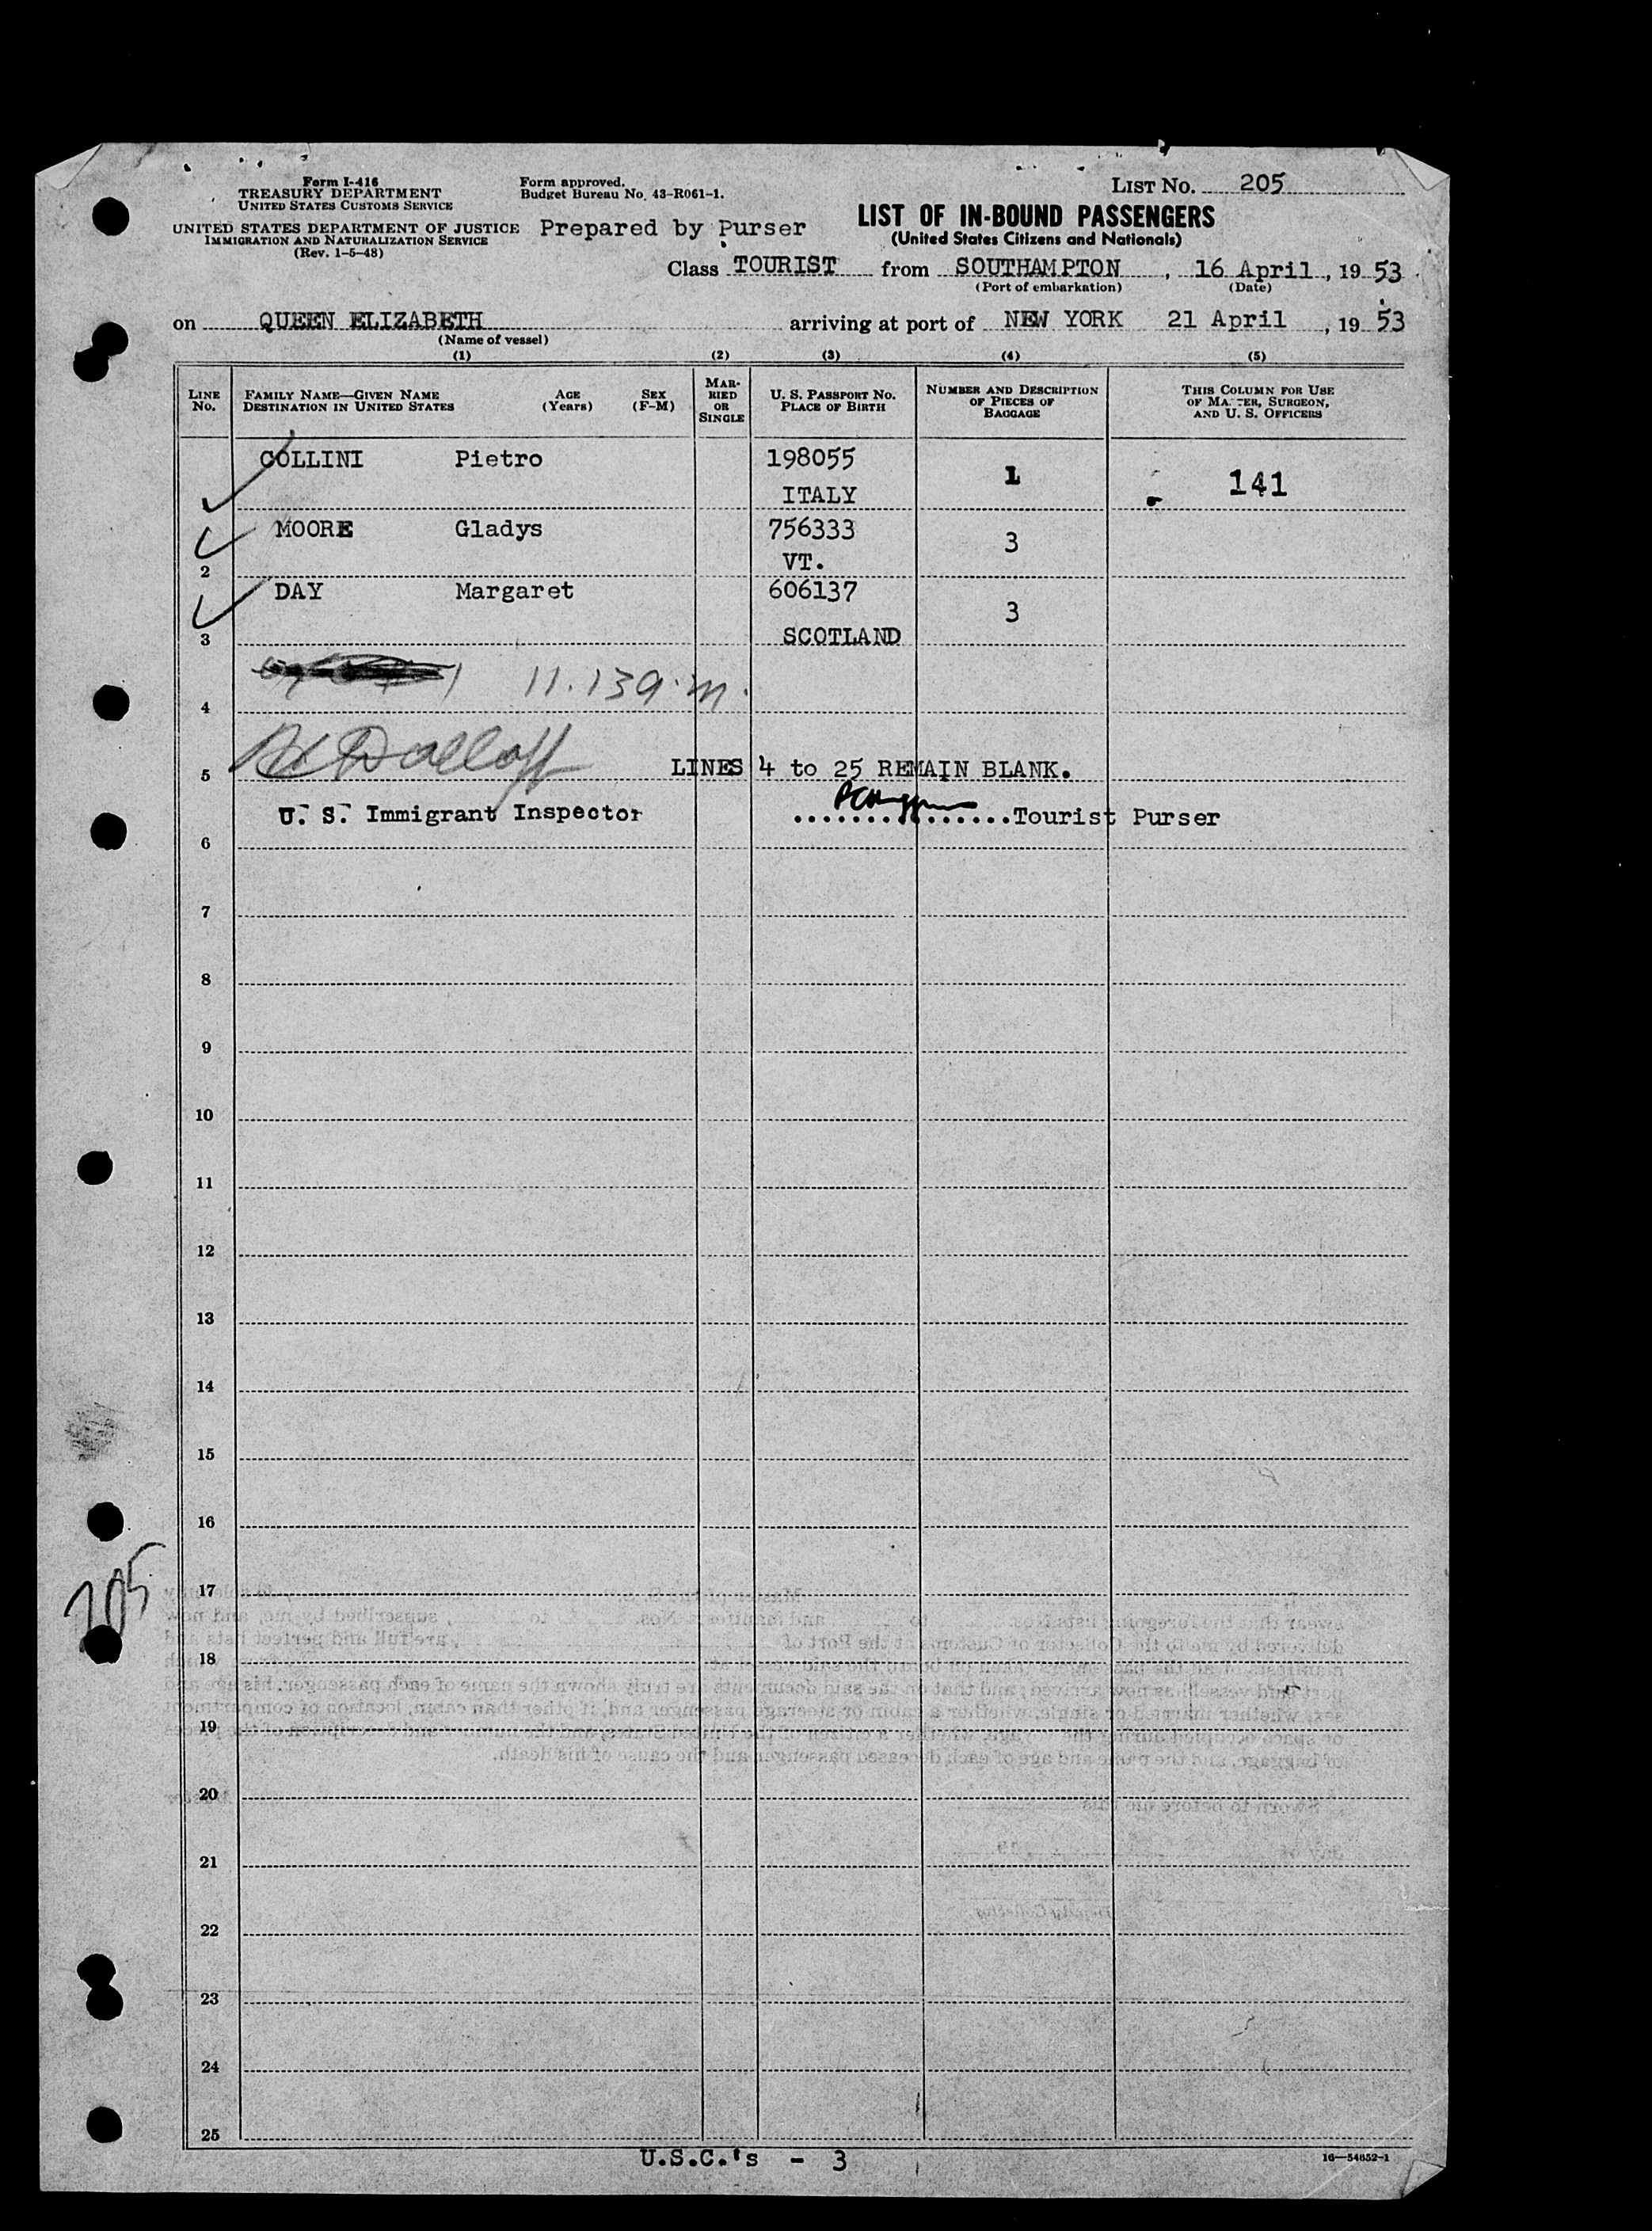 Form I-416
TREASURY DEPARTMENT
UNITED STATES CUSTOMS SERVICE
UNITED STATES DEPARTMENT OF JUSTICE
IMMIGRATION AND NATURALIZATION SERVICE
(Rev. 1-5-48)
Form approved.
Budget Bureau No. 43-R061-1.
Prepared by Purser
LIST NO. 205
LIST OF IN-BOUND PASSENGERS
(United States Citizens and Nationals)
Class TOURIST from SOUTHAMPTON, 16 April, 19 53
(Port of embarkation) (Date)
on QUEEN ELIZABETH arriving at port of NEW YORK 21 April, 19 53
(Name of vessel)
(1) (2) (3) (4) (5)
LINE NO.
FAMILY NAME—GIVEN NAME
DESTINATION IN UNITED STATES
AGE (Years)
SEX (F-M)
MARRIED OR SINGLE
U. S. PASSPORT NO.
PLACE OF BIRTH
NUMBER AND DESCRIPTION OF PIECES OF BAGGAGE
THIS COLUMN FOR USE OF MASTER, SURGEON, AND U. S. OFFICERS
COLLINI Pietro 198055 1 141
ITALY
MOORE Gladys 756333 3
2 VT.
DAY Margaret 606137 3
3 SCOTLAND
4
5 LINES 4 to 25 REMAIN BLANK.
U. S. Immigrant Inspector ...............Tourist Purser
6
7
8
9
10
11
12
13
14
15
16
205
17
18
19
20
21
22
23
24
25
U.S.C.'s - 3
16—54652-1